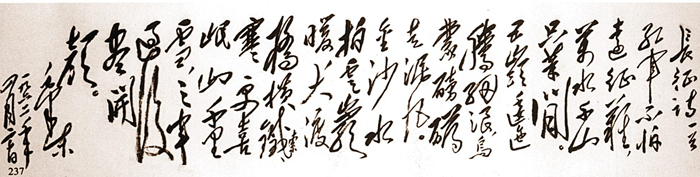 長征詩一首
紅軍不怕
遠征難
萬水千山
只等閒。
五嶺逶迤
騰細浪烏
蒙磅礴
走泥丸。
金沙水
拍雲崖
暖大渡
橋橫鐵索
寒更喜
岷山千里
雪三軍
過後
盡開
顏。
毛澤東
一九六二年
四月
237